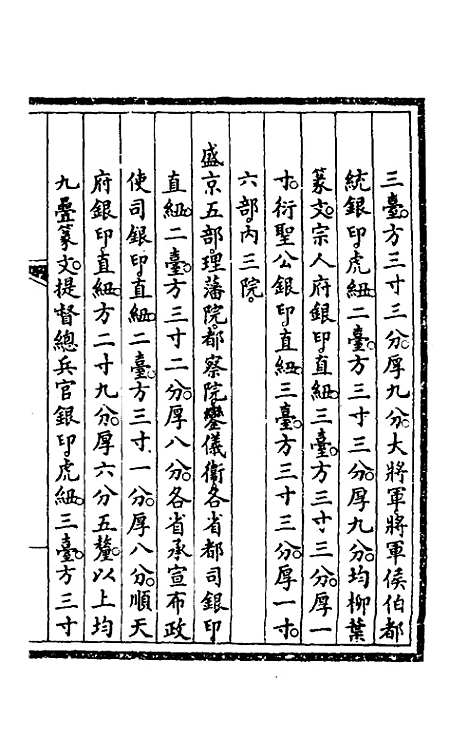 三臺。方三寸三分。厚九分。大將軍。將軍。侯伯都
統銀印。虎紐。二臺。方三寸三分。厚九分。均柳葉
篆文。宗人府銀印。直紐。三臺。方三寸三分。厚一
寸。衍聖公銀印。直紐。三臺。方三寸三分。厚一寸。
六部。內三院。
盛京五部。理藩院。都察院。鑾儀衛。各省都司銀印。
直紐。二臺。方三寸二分。厚八分。各省承宣布政
使司銀印。直紐。二臺。方三寸一分。厚八分。順天
府銀印。直紐。方二寸九分。厚六分五釐。以上均
九疊篆文。提督總兵官銀印。虎紐。三臺。方三寸